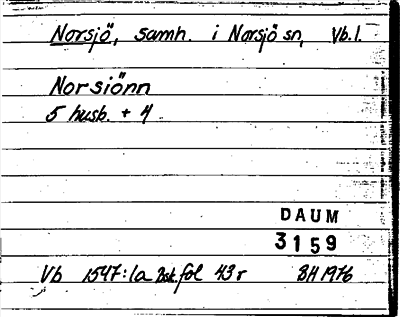 Norsjö, samh. i Norsjö sn, Vb.l.
Norsiönn
5 husb. + 4
DAUM
3159
Vb 1547:1a Bsk fol 43r BH 1976